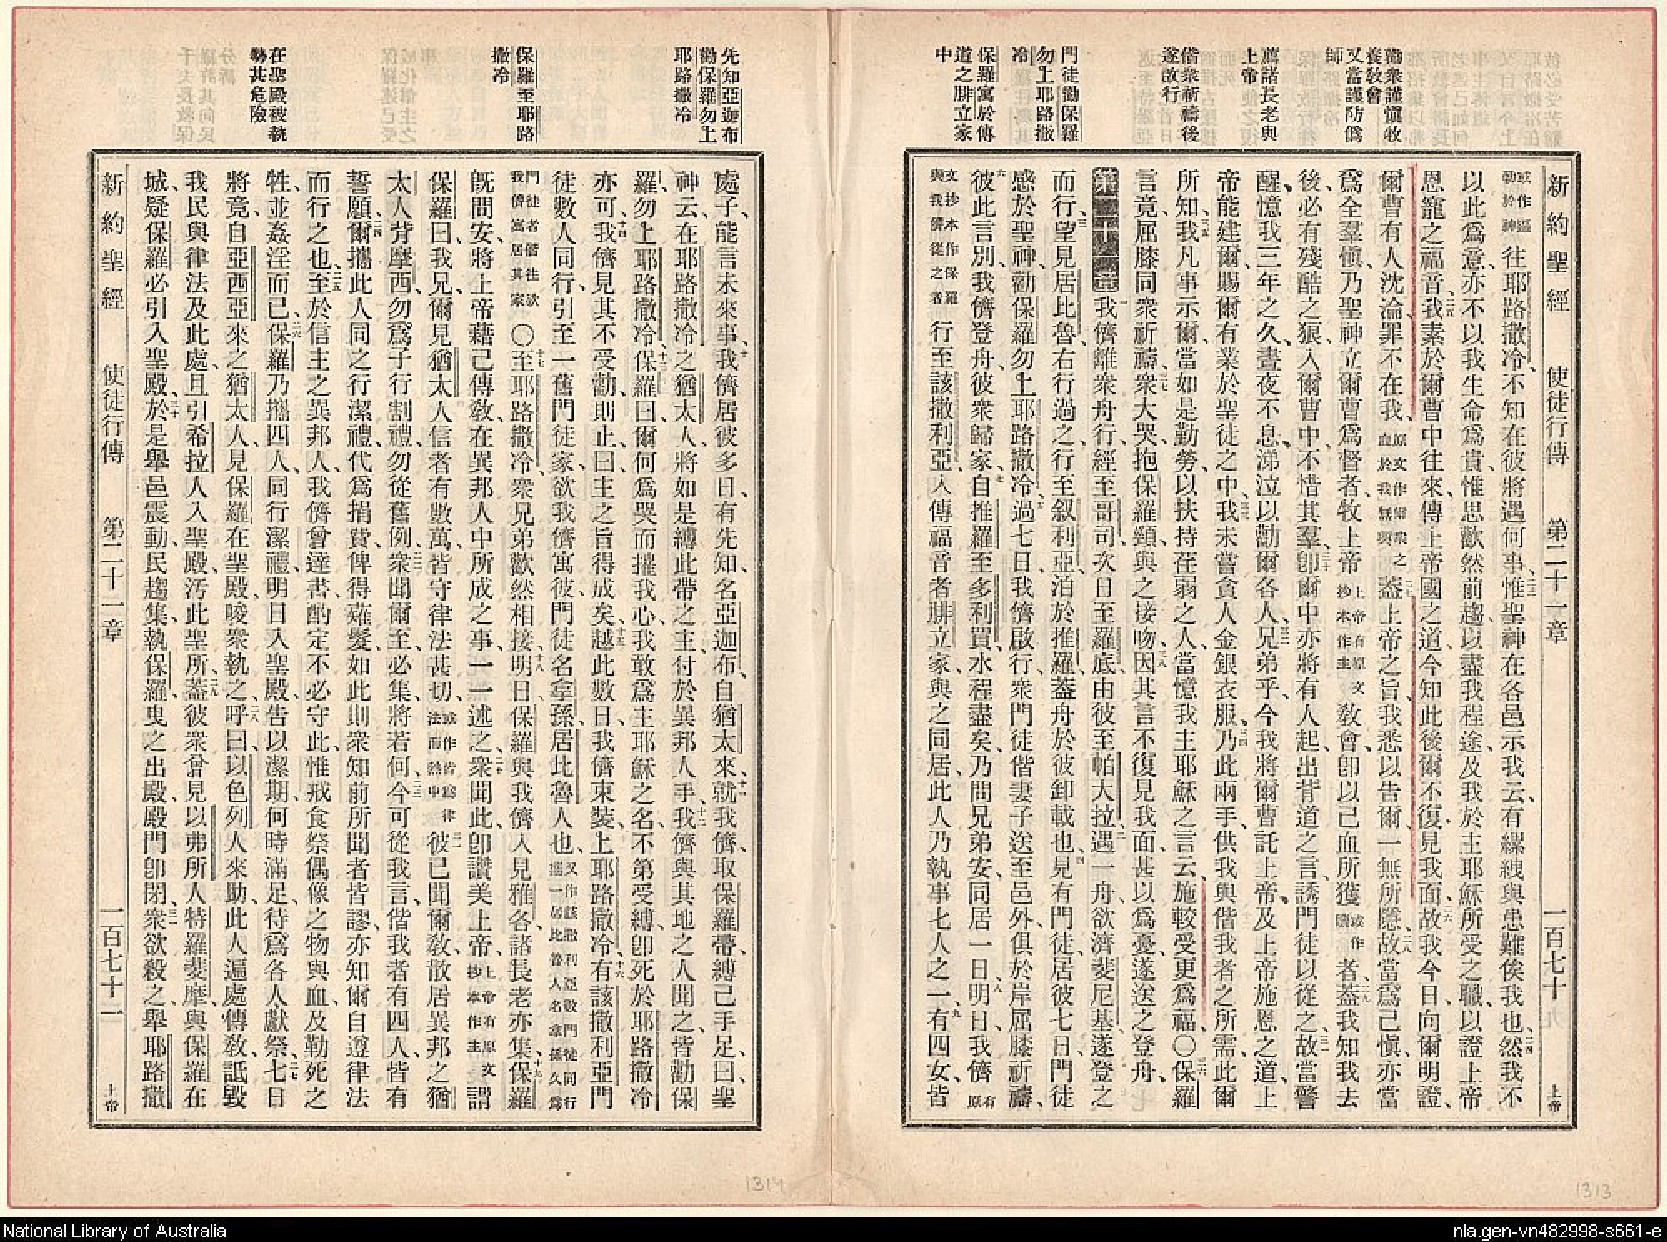 新約聖經 使徒行傳 第二十一章 一百七十 上帝
勸衆謹愼牧
養敎會
又當謹防僞
師
薦諸長老與
上帝
偕衆祈禱後
遂啟行
門徒勸保羅
勿上耶路撒
冷
保羅寓於傳
道之腓立家
中
往耶路撒冷不知在彼將遇何事惟聖神在各邑示我云有縲絏與患難俟我也然我不
以此爲意亦不以我生命爲貴惟思歡然前趨以盡我程途及我於主耶穌所受之職以證上帝
恩寵之福音我素於爾曹中往來傳上帝國之道今知此後爾不復見我面故我今日向爾明證
爾曹有人沈淪罪不在我原文作爾衆之血於我無與蓋上帝之旨我悉以告爾一無所隱故當爲己愼亦當
爲全羣愼乃聖神立爾曹爲督者牧上帝上帝有原文抄本作主敎會卽以己血所獲或作贖者蓋我知我去
後必有殘酷之狼入爾曹中不惜其羣卽爾中亦將有人起出背道之言誘門徒以從之故當警
醒憶我三年之久晝夜不息涕泣以勸爾各人兄弟乎今我將爾曹託上帝及上帝施恩之道上
帝能建爾賜爾有業於聖徒之中我未嘗貪人金銀衣服乃此兩手供我與偕我者之所需此爾
所知我凡事示爾當如是勤勞以扶持荏弱之人當憶我主耶穌之言云施較受更爲福〇保羅
言竟屈膝同衆祈禱衆大哭抱保羅頸與之接吻因其言不復見我面甚以爲憂遂送之登舟
第二十一章我儕離衆舟行經至哥司次日至羅底由彼至帕大拉遇一舟欲濟斐尼基遂登之
而行望見居比魯右行過之行至叙利亞泊於推羅蓋舟於彼卸載也見有門徒居彼七日門徒
感於聖神勸保羅勿上耶路撒冷過七日我儕啟行衆門徒偕妻子送至邑外俱於岸屈膝祈禱
彼此言別我儕登舟彼衆歸家自推羅至多利買水程盡矣乃問兄弟安同居一日明日我儕有原
文抄本作保羅與我儕從之者行至該撒利亞入傳福音者腓立家與之同居此人乃執事七人之一有四女皆
先知亞迦布
勸保羅勿上
耶路撒冷
保羅至耶路
撒冷
在聖殿被執
勢甚危險
處子能言未來事我儕居彼多日有先知名亞迦布自猶太來就我儕取保羅帶縛己手足曰聖
神云在耶路撒冷之猶太人將如是縛此帶之主付於異邦人手我儕與其地之人聞之皆勸保
羅勿上耶路撒冷保羅曰爾何爲哭而摧我心我敢爲主耶穌之名不第受縛卽死於耶路撒冷
亦可我儕見其不受勸則止曰主之旨得成矣越此數日我儕束裝上耶路撒冷有該撒利亞門
徒數人同行引至一舊門徒家欲我儕寓彼門徒名拿孫居比魯人也又作該撒利亞數門徒同行攜一居比魯人名拿孫久爲
門徒者偕往欲我儕寓居其家〇至耶路撒冷衆兄弟歡然相接明日保羅與我儕入見雅各諸長老亦集保羅
旣問安將上帝藉己傳敎在異邦人中所成之事一一述之衆聞此卽讚美上帝上帝有原文抄本作主謂
保羅曰我兄爾見猶太人信者有數萬皆守律法甚切彼已聞爾敎散居異邦之猶
太人背摩西勿爲子行割禮勿從舊例衆聞爾至必集將若何今可從我言偕我者有四人皆有
誓願爾攜此人同之行潔禮代爲捐費俾得薙髮如此則衆知前所聞者皆謬亦知爾自遵律法
而行之也至於信主之異邦人我儕曾達書酌定不必守此惟戒食祭偶像之物與血及勒死之
牲並姦淫而已保羅乃攜四人同行潔禮明日入聖殿告以潔期何時滿足待爲各人獻祭七日
將竟自亞西亞來之猶太人見保羅在聖殿唆衆執之呼曰以色列人來助此人遍處傳敎詆毀
我民與律法及此處且引希拉人入聖殿汚此聖所蓋彼衆曾見以弗所人特羅斐摩與保羅在
城疑保羅必引入聖殿於是舉邑震動民趨集執保羅曳之出殿殿門卽閉衆欲殺之舉耶路撒
新約聖經 使徒行傳 第二十一章 一百七十一 上帝
1314
1313
National Library of Australia
nla.gen-vn482998-s661-e